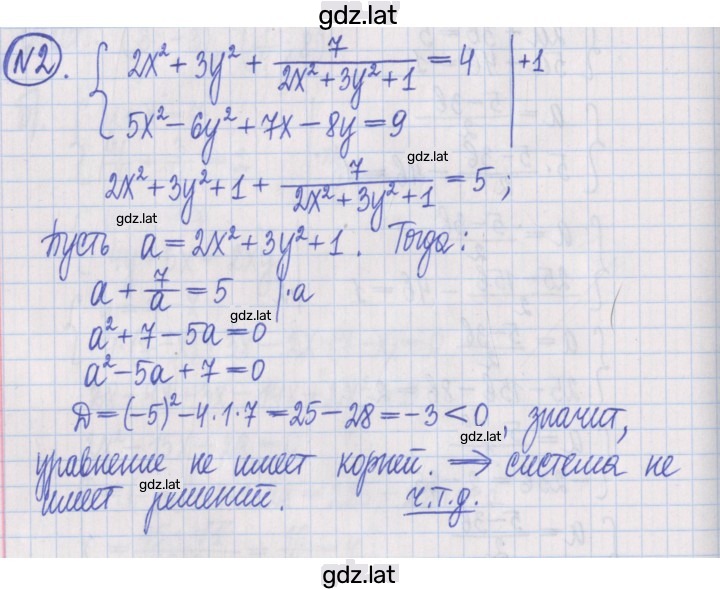 gdz.lat
N2. { 2x² + 3y² + 7/(2x² + 3y² + 1) = 4 | +1
5x² - 6y² + 7x - 8y = 9
2x² + 3y² + 1 + 7/(2x² + 3y² + 1) = 5 ;
gdz.lat
gdz.lat
Пусть a = 2x² + 3y² + 1 . Тогда :
a + 7/a = 5 | · a
gdz.lat
a² + 7 - 5a = 0
a² - 5a + 7 = 0
Д = (-5)² - 4 · 1 · 7 = 25 - 28 = -3 < 0 , значит,
gdz.lat
уравнение не имеет корней. ⟹ система не
gdz.lat
имеет решений. ч.т.д.
gdz.lat